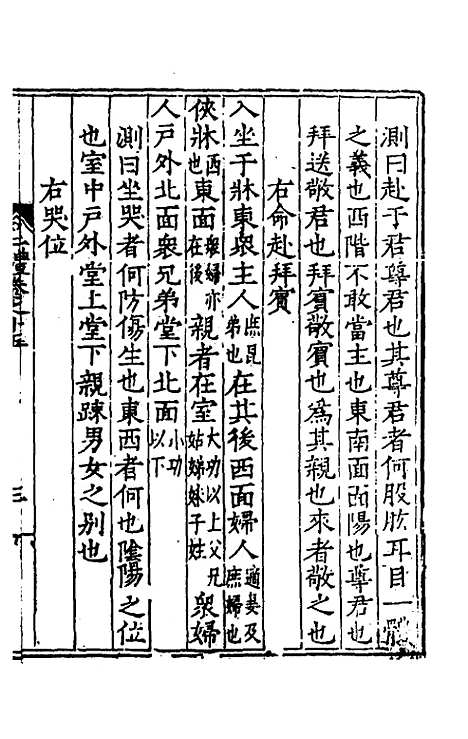 測曰赴于君尊君也其尊君者何股肱耳目一體
之義也西階不敢當主也東南面面陽也尊君也
拜送敬君也拜賓敬賓也為其親也來者敬之也
右命赴拜賓
入坐于牀東衆主人庶昆弟也在其後西面婦人適妻及庶婦也
俠牀西也東面衆婦亦在後親者在室大功以上父兄姑姊妹子姓衆婦
人戶外北面衆兄弟堂下北面小功以下
測曰坐哭者何防傷生也東西者何也陰陽之位
也室中戶外堂上堂下親踈男女之别也
右哭位
二禮卷之十五
三